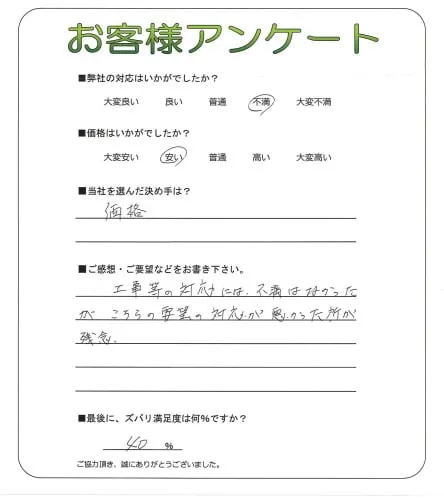 お客様アンケート
■弊社の対応はいかがでしたか？
大変良い 良い 普通 不満 大変不満
■価格はいかがでしたか？
大変安い 安い 普通 高い 大変高い
■当社を選んだ決め手は？
価格
■ご感想・ご要望などをお書き下さい。
工事等の対応には、不満はなかった
が こちらの要望の対応が悪かった所が
残念.
■最後に、ズバリ満足度は何%ですか？
40 %
ご協力頂き、誠にありがとうございました。